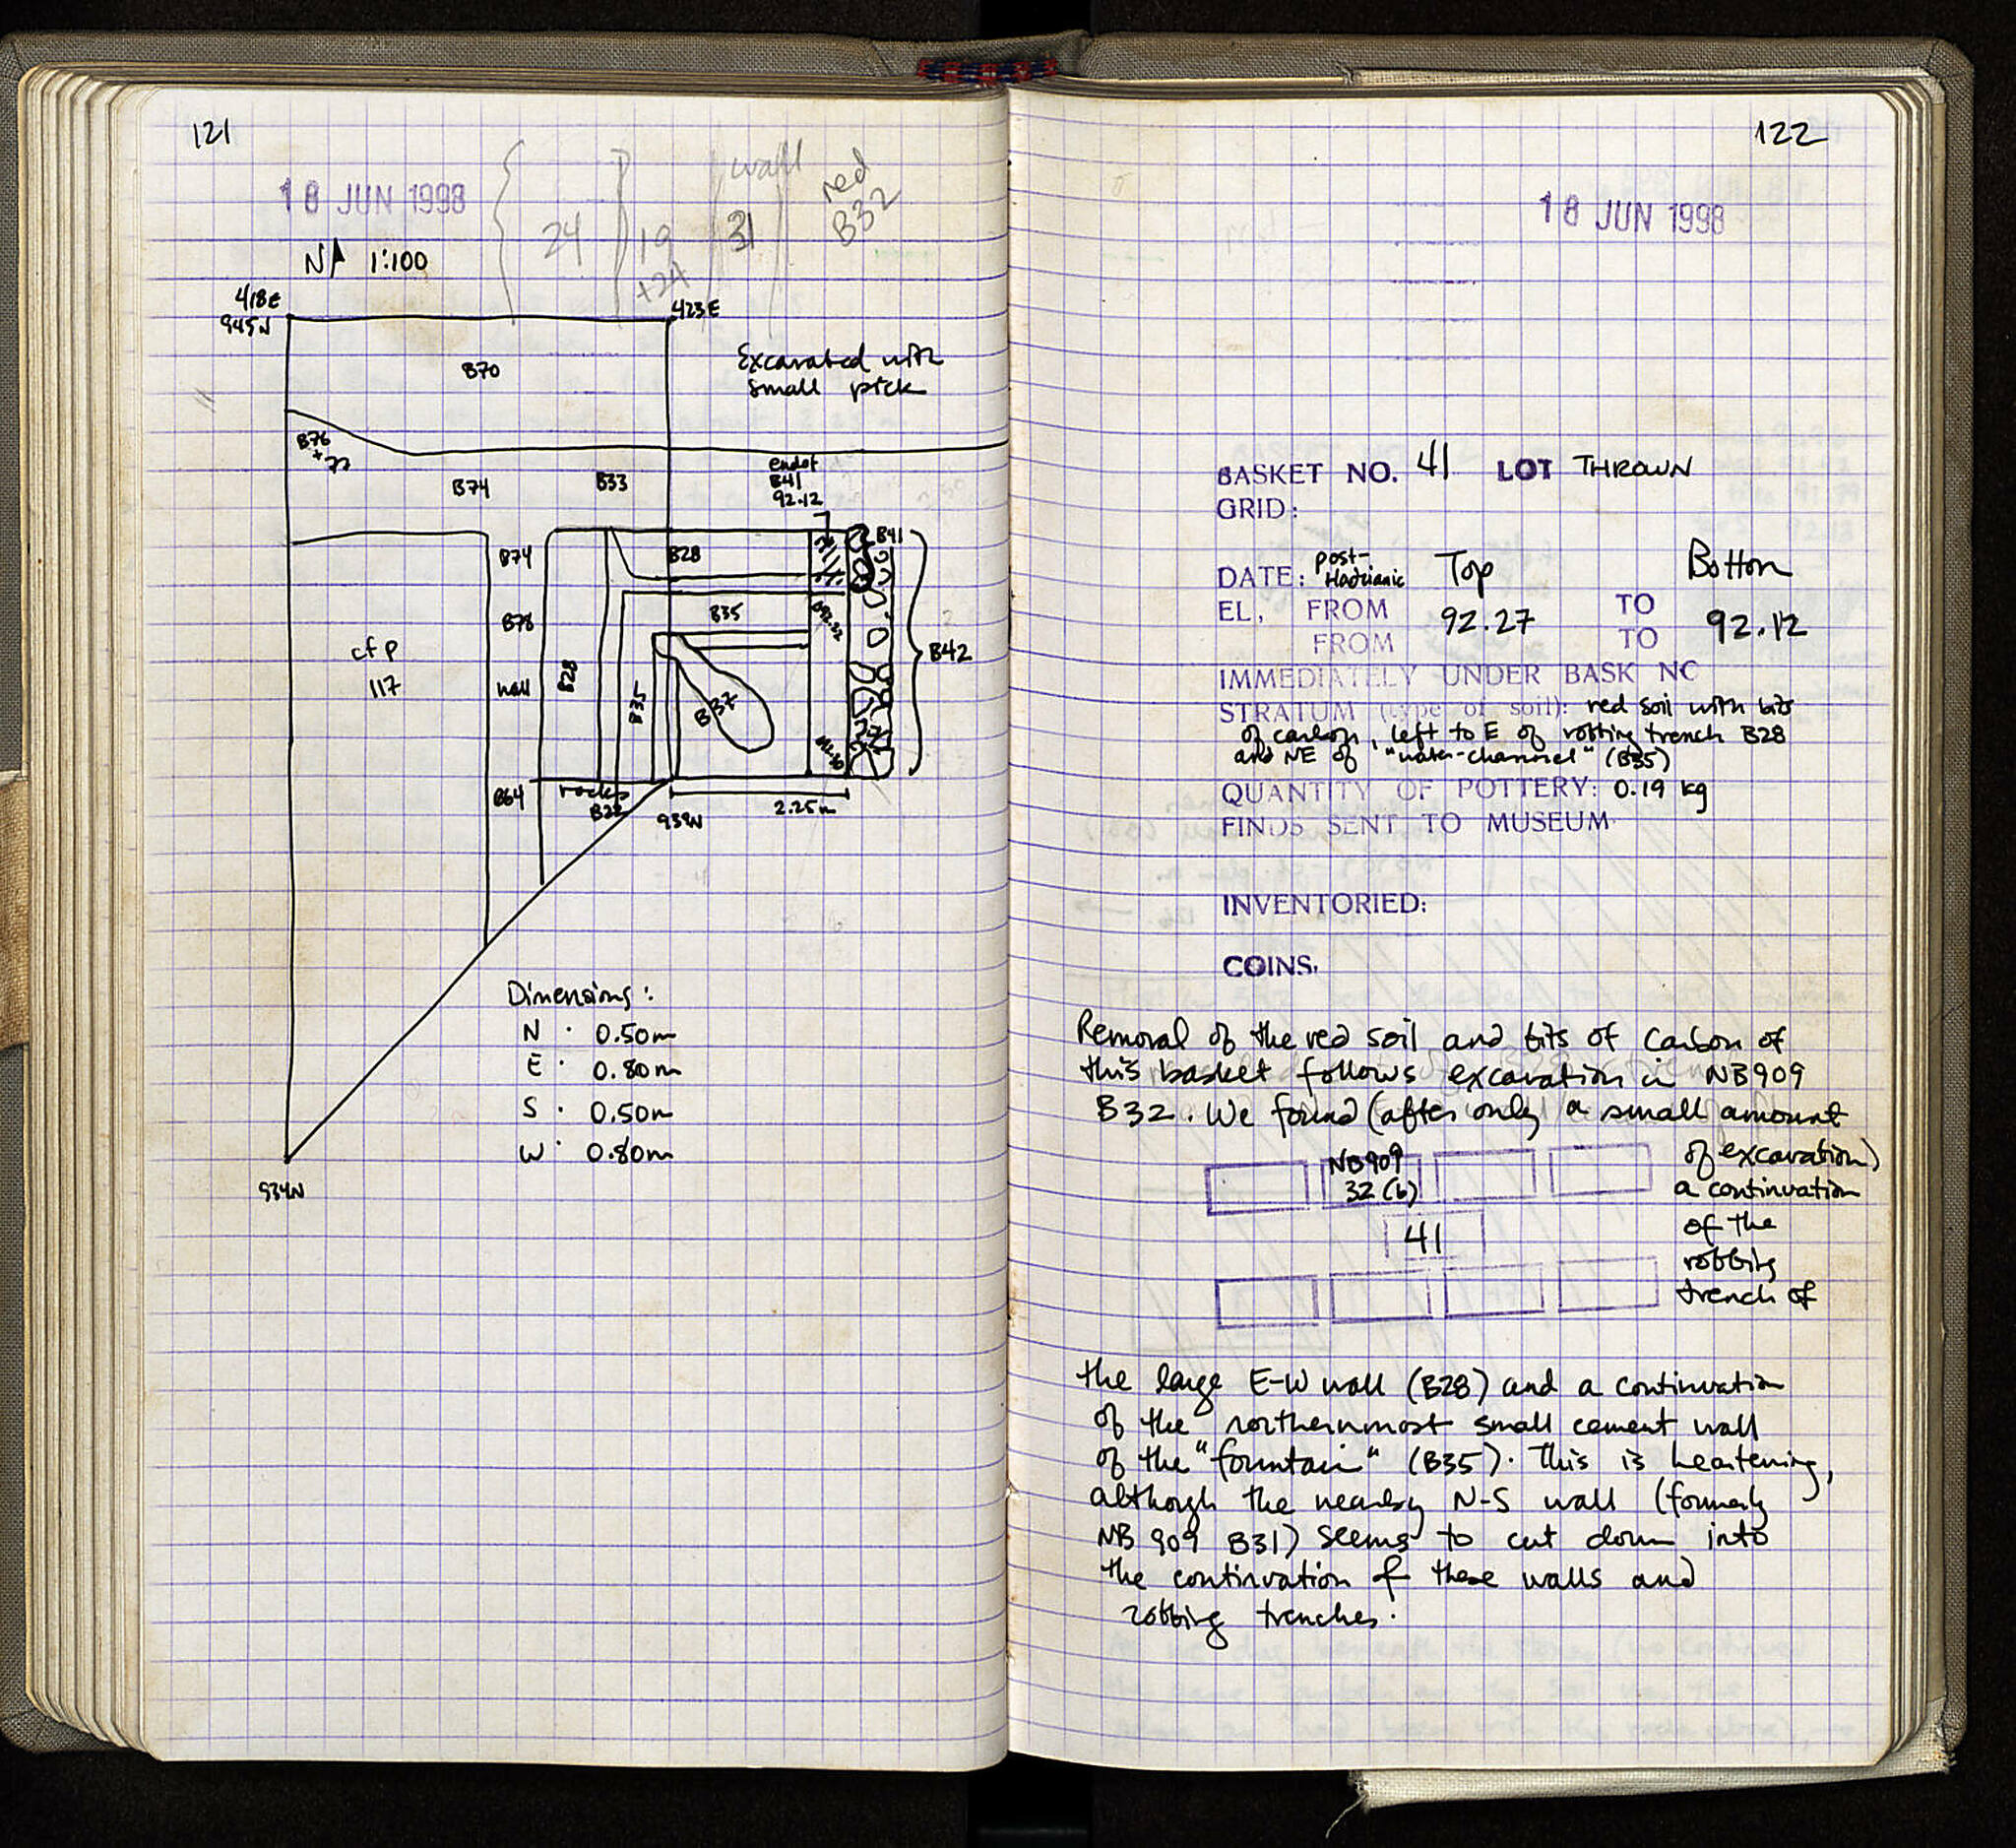 121
18 JUN 1998
24
19
+24
wall
31
red
B32
N 1:100
418E
945N
423E
B70
Excavated with
small pick
B76
+77
B74
B33
end of
B41
92.12
B74
B28
B41
B78
B35
B42
cf p
117
wall
B28
B35
B37
B64
rocks
B28
939N
2.25m
934N
Dimensions:
N · 0.50m
E · 0.80m
S · 0.50m
W · 0.80m
122
18 JUN 1998
BASKET NO. 41 LOT THROWN
GRID:
DATE: post-Hadrianic Top Bottom
EL, FROM 92.27 TO 92.12
FROM TO
IMMEDIATELY UNDER BASK NO
STRATUM (type of soil): red soil with bits
of carbon, left to E of robbing trench B28
and NE of "water-channel" (B35)
QUANTITY OF POTTERY: 0.19 kg
FINDS SENT TO MUSEUM
INVENTORIED:
COINS.
Removal of the red soil and bits of carbon of
this basket follows excavation in NB909
B32. We found (after only a small amount
of excavation)
a continuation
of the
robbing
trench of
NB909
32 (b)
41
the large E-W wall (B28) and a continuation
of the northernmost small cement wall
of the "fountain" (B35). This is heartening,
although the nearby N-S wall (formerly
NB 909 B31) seems to cut down into
the continuation of these walls and
robbing trenches.